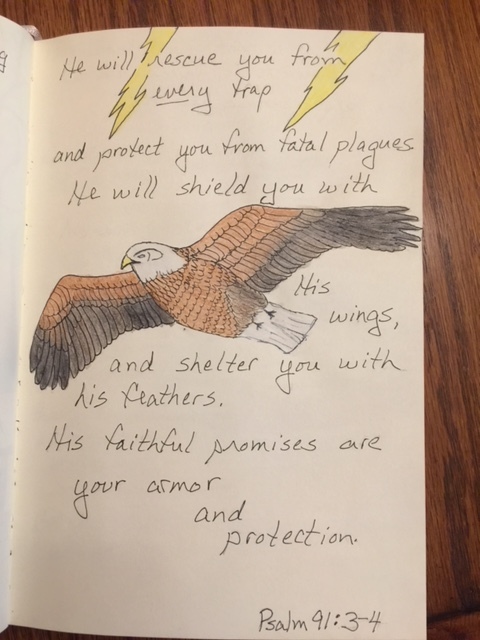 He will rescue you from
every trap
and protect you from fatal plagues
He will shield you with
His
wings,
and shelter you with
his feathers.
His faithful promises are
your armor
and
protection.
Psalm 91:3-4